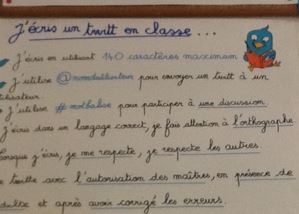 J'écris un twitt en classe ...
J'écris en utilisant 140 caractères maximum
J'utilise @nomdutilisateur pour envoyer un twitt à un
utilisateur.
J'utilise #motbalise pour participer à une discussion.
J'écris dans un langage correct, je fais attention à l'orthographe
Lorsque j'écris, je me respecte, je respecte les autres.
twitte avec l'autorisation des maîtres, en présence de
adulte et après avoir corrigé les erreurs.